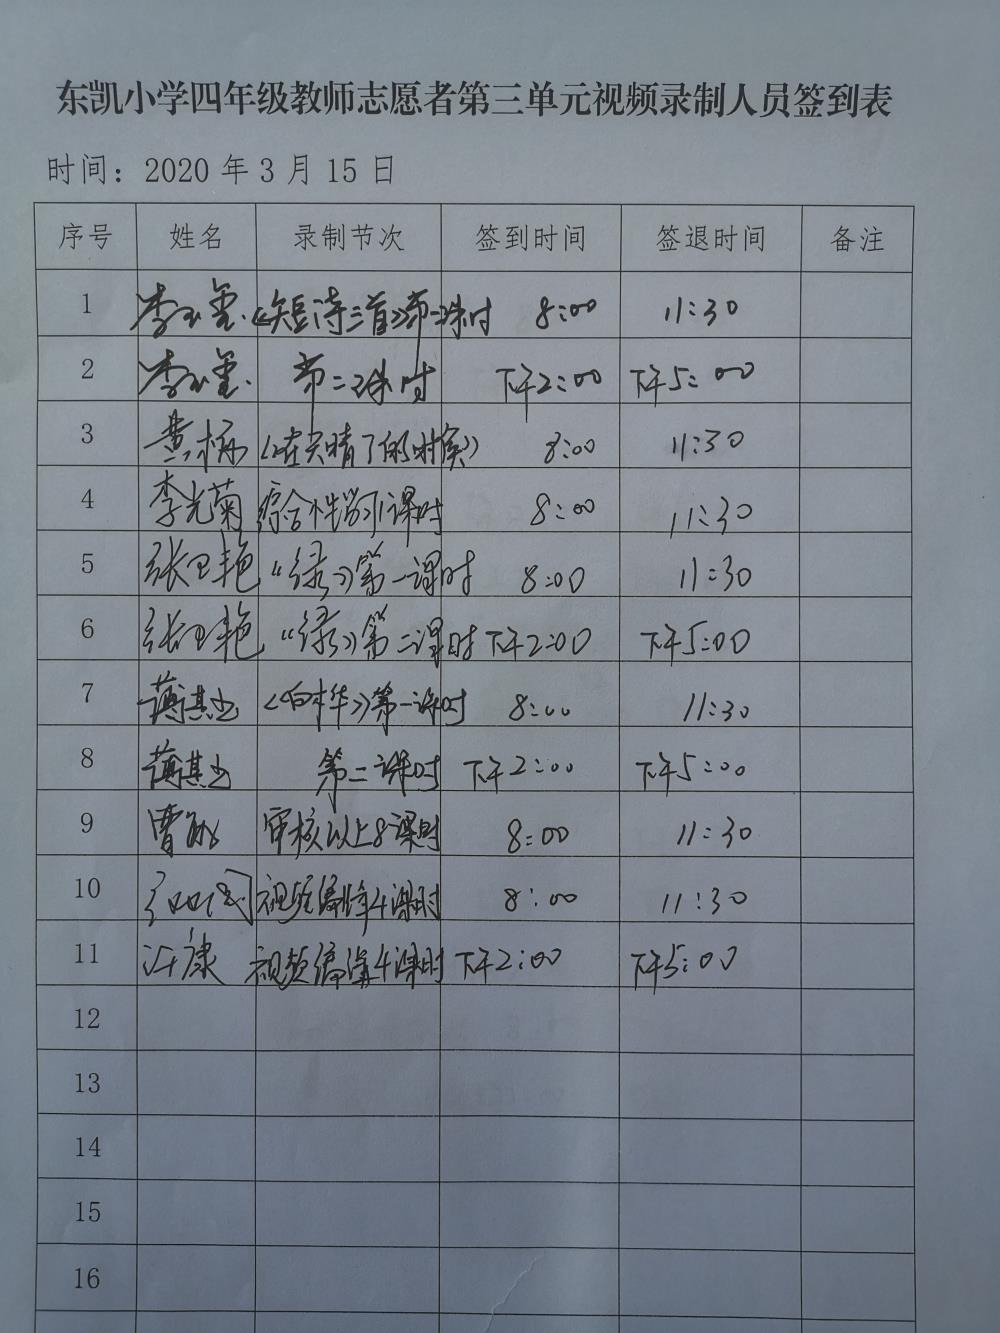 东凯小学四年级教师志愿者第三单元视频录制人员签到表
时间：2020 年 3 月 15 日
序号 姓名 录制节次 签到时间 签退时间 备注
1 李玉玺 《短诗三首》第一课时 8:00 11:30
2 李玉玺 第二课时 下午2:00 下午5:00
3 黄 《在天晴了的时候》 8:00 11:30
4 李光菊 综合性学习1课时 8:00 11:30
5 张卫艳 《绿》第一课时 8:00 11:30
6 张卫艳 《绿》第二课时 下午2:00 下午5:00
7 《白桦》第一课时 8:00 11:30
8 第二课时 下午2:00 下午5:00
9 曹 审核以上8课时 8:00 11:30
10 视频编辑4课时 8:00 11:30
11 许康 视频编辑4课时 下午2:00 下午5:00
12
13
14
15
16